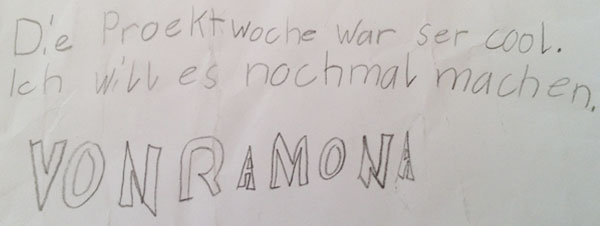 Die Proektwoche war ser cool.
Ich will es nochmal machen.
VON RAMONA